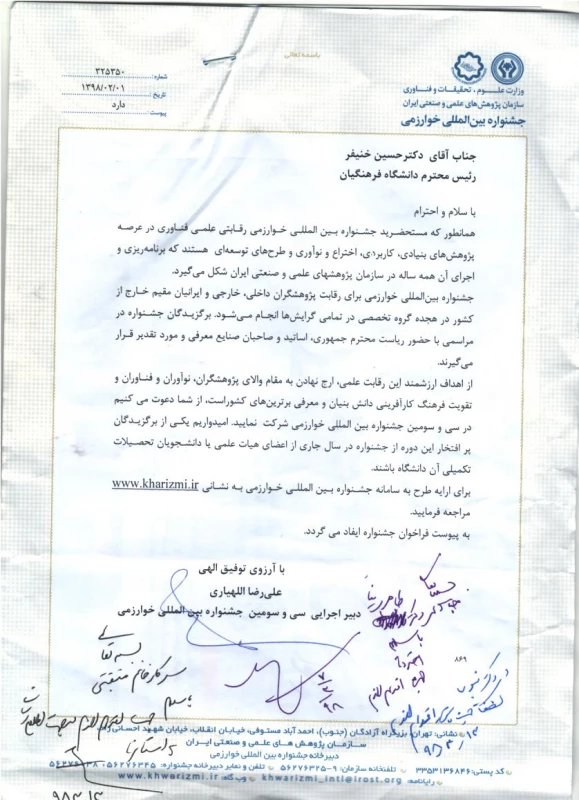 باسمه تعالی
وزارت علوم، تحقیقات و فناوری
سازمان پژوهش‌های علمی و صنعتی ایران
جشنواره بین‌المللی خوارزمی
شماره: ۳۲۵۳۵۰
تاریخ: ۱۳۹۸/۰۲/۰۱
پیوست: دارد
جناب آقای دکترحسین خنیفر
رئیس محترم دانشگاه فرهنگیان
با سلام و احترام
همانطور که مستحضرید جشنواره بین المللی خوارزمی رقابتی علمی فناوری در عرصه
پژوهش‌های بنیادی، کاربردی، اختراع و نوآوری و طرح‌های توسعه‌ای هستند که برنامه‌ریزی و
اجرای آن همه ساله در سازمان پژوهشهای علمی و صنعتی ایران شکل می‌گیرد.
جشنواره بین‌المللی خوارزمی برای رقابت پژوهشگران داخلی، خارجی و ایرانیان مقیم خارج از
کشور در هجده گروه تخصصی در تمامی گرایش‌ها انجام می‌شود. برگزیدگان جشنواره در
مراسمی با حضور ریاست محترم جمهوری، اساتید و صاحبان صنایع معرفی و مورد تقدیر قرار
می‌گیرند.
از اهداف ارزشمند این رقابت علمی، ارج نهادن به مقام والای پژوهشگران، نوآوران و فناوران و
تقویت فرهنگ کارآفرینی دانش بنیان و معرفی برترین‌های کشوراست، از شما دعوت می کنیم
در سی و سومین جشنواره بین المللی خوارزمی شرکت نمایید. امیدواریم یکی از برگزیدگان
پر افتخار این دوره از جشنواره در سال جاری از اعضای هیات علمی یا دانشجویان تحصیلات
تکمیلی آن دانشگاه باشند.
برای ارایه طرح به سامانه جشنواره بین المللی خوارزمی به نشانی www.kharizmi.ir
مراجعه فرمایید.
به پیوست فراخوان جشنواره ایفاد می گردد.
با آرزوی توفیق الهی
علی‌رضا اللهیاری
دبیر اجرایی سی و سومین جشنواره بین المللی خوارزمی
۸۶۹
نشانی: تهران، بزرگراه آزادگان (جنوب)، احمد آباد مستوفی، خیابان انقلاب، خیابان شهید احسانی راد
سازمان پژوهش های علمی و صنعتی ایران
دبیرخانه جشنواره بین‌المللی خوارزمی
کد پستی: ۳۳۵۳۱۳۶۸۴۶ تلفنخانه سازمان: ۹-۵۶۲۷۶۳۲۵ تلفن و نمابر دبیرخانه جشنواره: ۵۶۲۷۶۳۲۵، ۵۶۲۷۶۰۳۸
رایانامه: khwarizmi_intl@irost.org وب گاه: www.khwarizmi.ir